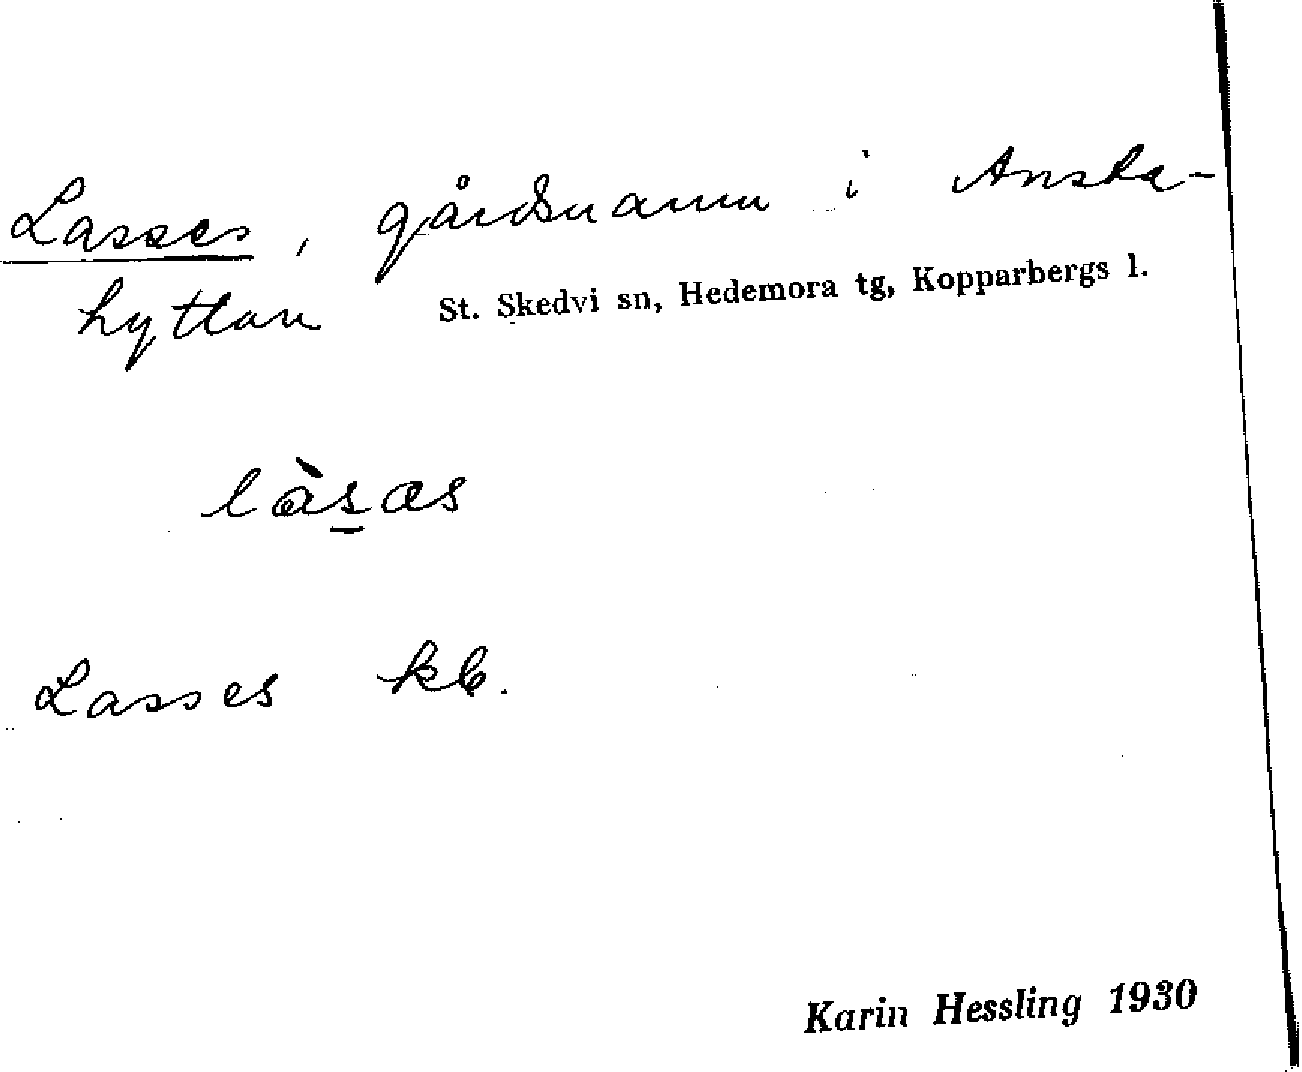 Lasses, gårdsnamn i Ansta-
hyttan St. Skedvi sn, Hedemora tg, Kopparbergs l.
làs̲as
Lasses kb.
Karin Hessling 1930